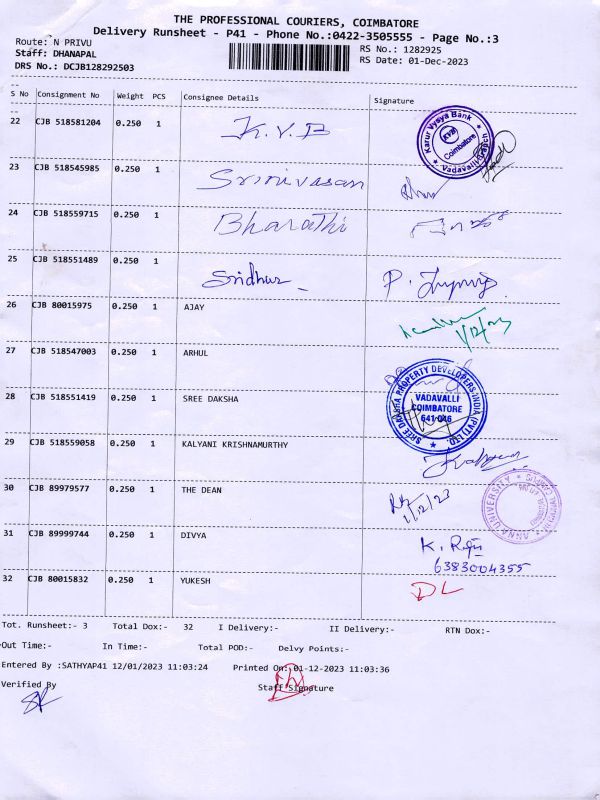 THE PROFESSIONAL COURIERS, COIMBATORE
Delivery Runsheet - P41 - Phone No.:0422-3505555 - Page No.:3
Route: N PRIVU
Staff: DHANAPAL
DRS No.: DCJB128292503
RS No.: 1282925
RS Date: 01-Dec-2023
S No Consignment No Weight PCS Consignee Details Signature
22 CJB 518581204 0.250 1 K.V.B
Karur Vysya Bank
KVB
Coimbatore
Vadavalli
23 CJB 518545985 0.250 1 Srinivasan
24 CJB 518559715 0.250 1 Bharathi
25 CJB 518551489 0.250 1 Sridhar
26 CJB 80015975 0.250 1 AJAY 1/12/23
27 CJB 518547003 0.250 1 ARHUL
28 CJB 518551419 0.250 1 SREE DAKSHA
SREE DAKSHA PROPERTY DEVELOPERS INDIA (PVT) LTD.
VADAVALLI
COIMBATORE
641 046
29 CJB 518559058 0.250 1 KALYANI KRISHNAMURTHY
30 CJB 89979577 0.250 1 THE DEAN 1/12/23
ANNA UNIVERSITY
31 CJB 89999744 0.250 1 DIVYA K. Raju
6383004355
32 CJB 80015832 0.250 1 YUKESH DL
Tot. Runsheet:- 3 Total Dox:- 32 I Delivery:- II Delivery:- RTN Dox:-
Out Time:- In Time:- Total POD:- Delvy Points:-
Entered By :SATHYAP41 12/01/2023 11:03:24 Printed On: 01-12-2023 11:03:36
Verified By Staff Signature